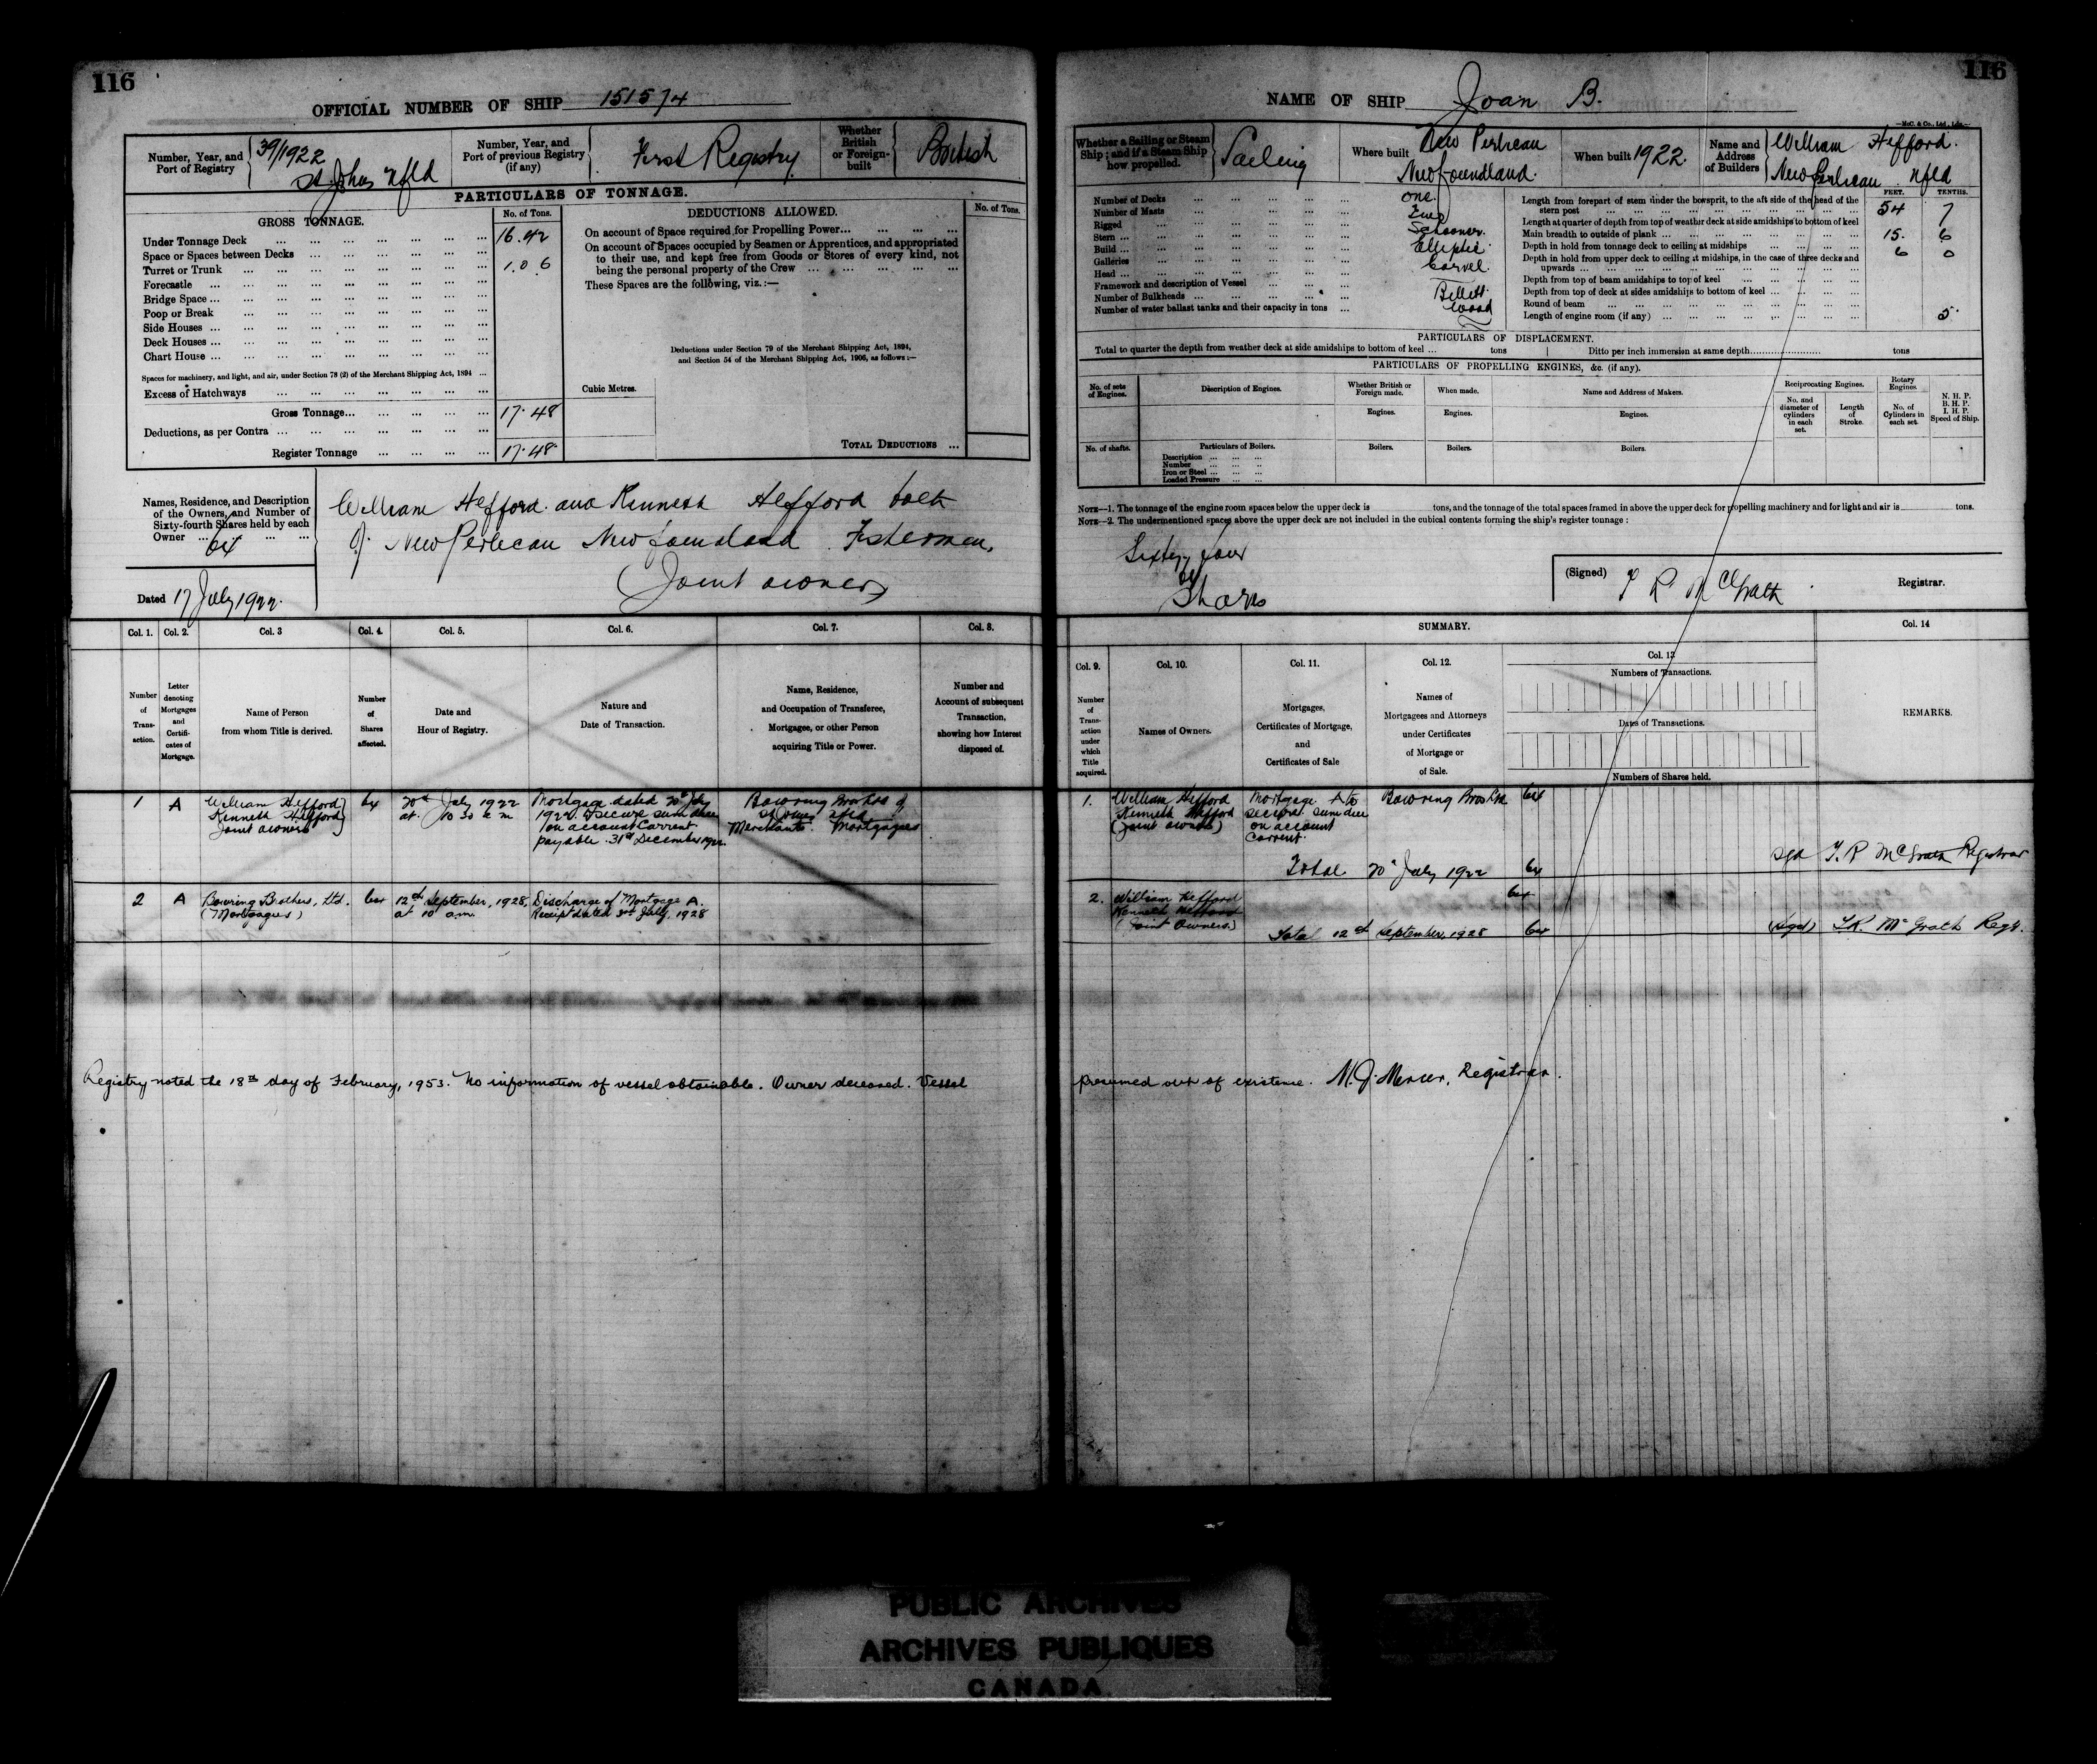 116
OFFICIAL NUMBER OF SHIP 151574
Number, Year, and Port of Registry
39/1922
St Johns Nfld
Number, Year, and Port of previous Registry (if any)
First Registry
Whether British or Foreign-built
British
PARTICULARS OF TONNAGE.
GROSS TONNAGE.
No. of Tons.
Under Tonnage Deck ... 16.42
Space or Spaces between Decks ...
Turret or Trunk ... 1.06
Forecastle ...
Bridge Space ...
Poop or Break
Side Houses ...
Deck Houses ...
Chart House ...
Spaces for machinery, and light, and air, under Section 78 (2) of the Merchant Shipping Act, 1894 ...
Excess of Hatchways ...
Gross Tonnage... 17.48
Deductions, as per Contra ...
Register Tonnage ... 17.48
DEDUCTIONS ALLOWED.
No. of Tons.
On account of Space required for Propelling Power...
On account of Spaces occupied by Seamen or Apprentices, and appropriated
to their use, and kept free from Goods or Stores of every kind, not
being the personal property of the Crew ...
These Spaces are the following, viz.:—
Deductions under Section 79 of the Merchant Shipping Act, 1894,
and Section 54 of the Merchant Shipping Act, 1906, as follows:—
Cubic Metres.
TOTAL DEDUCTIONS ...
Names, Residence, and Description
of the Owners, and Number of
Sixty-fourth Shares held by each
Owner ...
64
William Hefford and Kenneth Hefford both
of New Perlican Newfoundland Fishermen,
(Joint owners)
Dated 17 July 1922.
Col. 1. Col. 2. Col. 3 Col. 4. Col. 5. Col. 6. Col. 7. Col. 8.
Number of Transaction.
Letter denoting Mortgages and Certificates of Mortgage.
Name of Person from whom Title is derived.
Number of Shares affected.
Date and Hour of Registry.
Nature and Date of Transaction.
Name, Residence, and Occupation of Transferee, Mortgagee, or other Person acquiring Title or Power.
Number and Account of subsequent Transaction, showing how Interest disposed of.
1 A
William Hefford
Kenneth Hefford
Joint owners
64
20th July 1922
at 10 30 a m
Mortgage dated 20th July
1922. To secure sum due
on account Current
payable 31st December 1922.
Bowring Brothers of
St Johns Nfld
Merchants. Mortgagees
2 A
Bowring Brothers, Ltd.
(Mortgagees)
64
12th September, 1928,
at 10 a.m.
Discharge of Mortgage A.
Receipt dated July, 1928
Registry noted the 18th day of February, 1953. No information of vessel obtainable. Owner deceased. Vessel
116
NAME OF SHIP Joan B.
—McC. & Co., Ltd., Ldn.—
Whether a Sailing or Steam Ship; and if a Steam Ship how propelled.
Sailing
Where built
New Perlican
Newfoundland.
When built 1922.
Name and Address of Builders
William Hefford.
New Perlican Nfld
FEET. TENTHS.
Number of Decks ... one
Number of Masts ... Two
Rigged ... Schooner.
Stern ... Elliptic
Build ... Carvel.
Galleries ...
Head ... Billett.
Framework and description of Vessel ... Wood
Number of Bulkheads ...
Number of water ballast tanks and their capacity in tons ...
Length from forepart of stem under the bowsprit, to the aft side of the head of the
stern post ... 54 7
Length at quarter of depth from top of weather deck at side amidships to bottom of keel
Main breadth to outside of plank ... 15. 6
Depth in hold from tonnage deck to ceiling at midships ... 6 0
Depth in hold from upper deck to ceiling at midships, in the case of three decks and
upwards ...
Depth from top of beam amidships to top of keel ...
Depth from top of deck at sides amidships to bottom of keel ...
Round of beam ... 5
Length of engine room (if any) ...
PARTICULARS OF DISPLACEMENT.
Total to quarter the depth from weather deck at side amidships to bottom of keel ... tons
Ditto per inch immersion at same depth... tons
PARTICULARS OF PROPELLING ENGINES, &c. (if any).
No. of sets of Engines.
Description of Engines.
Whether British or Foreign made.
When made.
Name and Address of Makers.
Reciprocating Engines.
Rotary Engines.
N. H. P.
B. H. P.
I. H. P.
Speed of Ship.
No. and diameter of cylinders in each set.
Length of Stroke.
No. of Cylinders in each set.
Engines. Engines. Engines.
No. of shafts.
Particulars of Boilers.
Boilers. Boilers. Boilers.
Description ...
Number ...
Iron or Steel ...
Loaded Pressure ...
NOTE—1. The tonnage of the engine room spaces below the upper deck is tons, and the tonnage of the total spaces framed in above the upper deck for propelling machinery and for light and air is tons.
NOTE—2. The undermentioned spaces above the upper deck are not included in the cubical contents forming the ship's register tonnage:
Sixty four
64
Shares
(Signed) T R McGrath Registrar.
SUMMARY.
Col. 9. Col. 10. Col. 11. Col. 12. Col. 13 Col. 14
Number of Transaction under which Title acquired.
Names of Owners.
Mortgages, Certificates of Mortgage, and Certificates of Sale
Names of Mortgagees and Attorneys under Certificates of Mortgage or of Sale.
Numbers of Transactions.
Dates of Transactions.
Numbers of Shares held.
REMARKS.
1.
William Hefford
Kenneth Hefford
(Joint owners)
Mortgage A to
secure sum due
on account
Current.
Bowring Bros Ltd
64
Total 20th July 1922 64
sgd T. R McGrath Registrar
2.
William Hefford
Kenneth Hefford
(Joint Owners.)
64
Total 12th September, 1928 64
(Sgd) T.R. McGrath Regr.
presumed out of existence. M. J. Mercer, Registrar.
PUBLIC ARCHIVES
ARCHIVES PUBLIQUES
CANADA